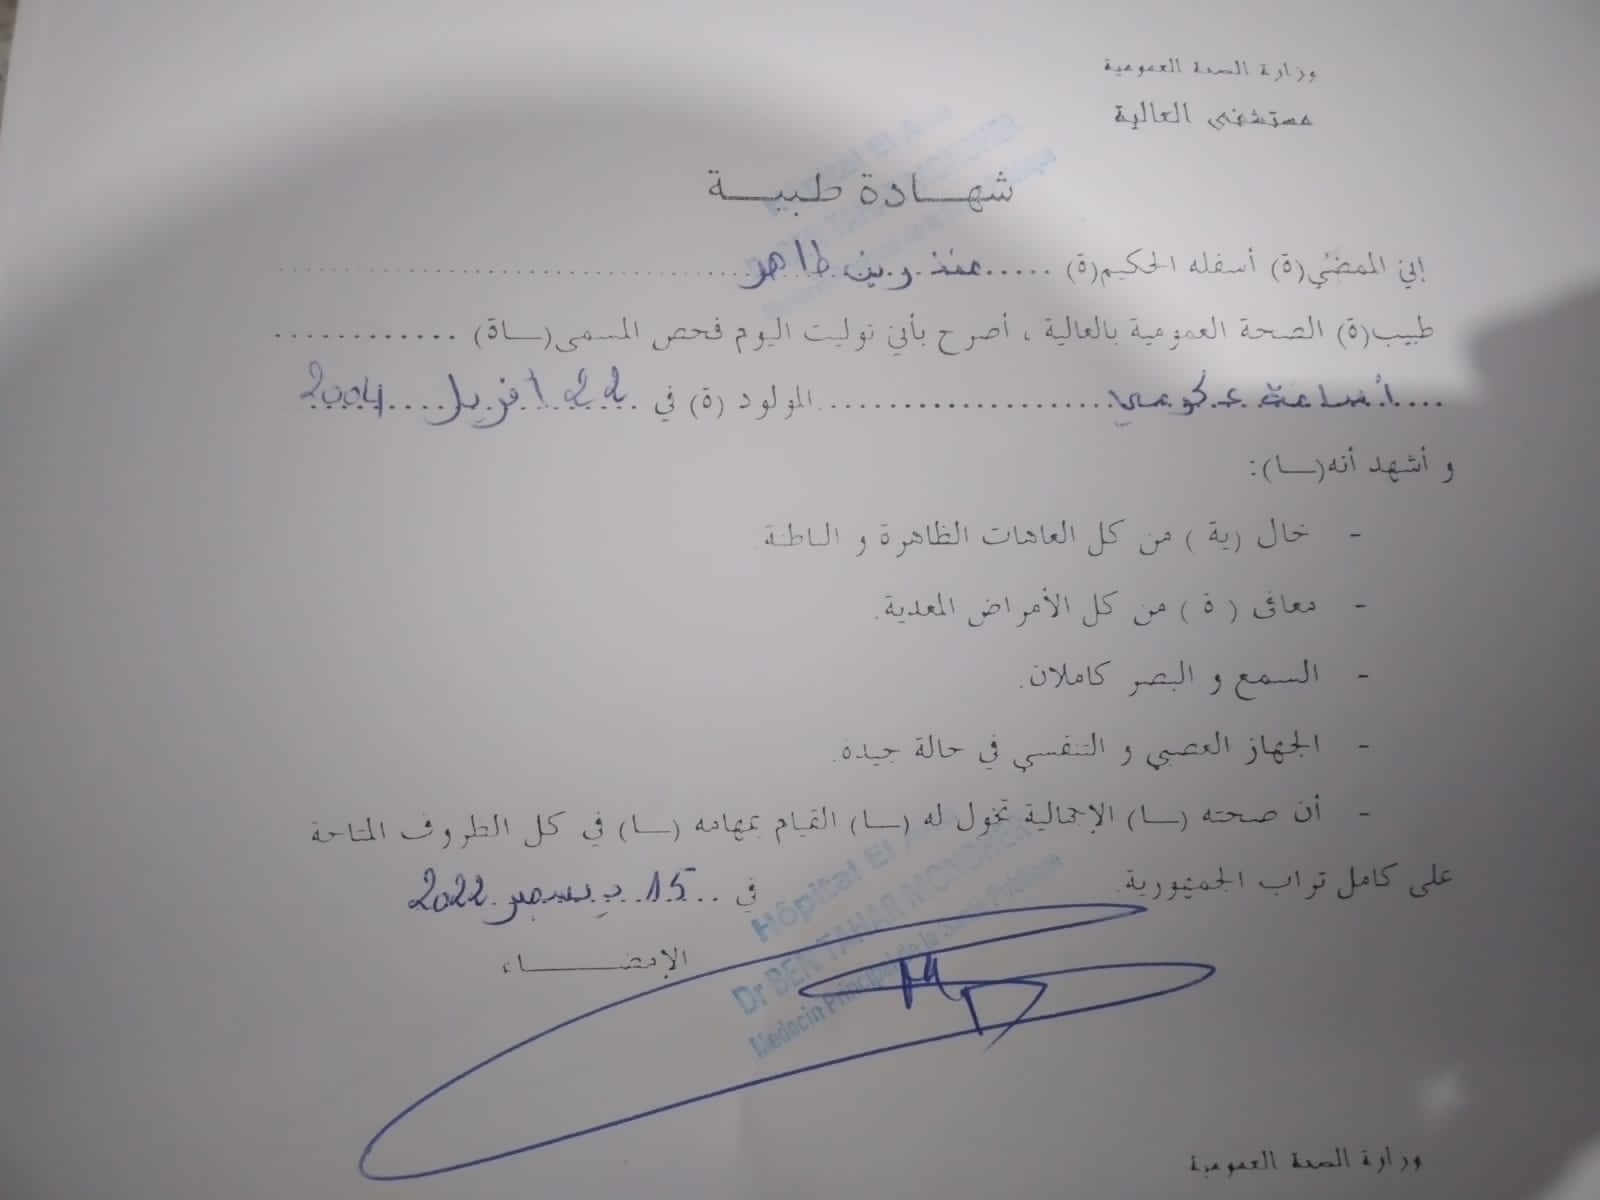 وزارة الصحة العمومية
مستشفى العالية
شهـــادة طبيـــة
إني الممضي(ة) أسفله الحكيم(ة) .....منذر بن طاهر..............................
طبيب(ة) الصحة العمومية بالعالية ، أصرح بأني توليت اليوم فحص المسمى(ــاة) ............
.... ..........................المولود (ة) في 22 أفريل 2004
و أشهد أنه(ــا):
- خال (ية ) من كل العاهات الظاهرة و الباطنة.
- معافى ( ة ) من كل الأمراض المعدية.
- السمع و البصر كاملان.
- الجهاز العصبي و التنفسي في حالة جيدة.
- أن صحته (ــا) الإجمالية تخول له (ــا) القيام بمهامه (ــا) في كل الظروف المتاحة
على كامل تراب الجمهورية. في ..15 ديسمبر 2022
الإمضـــــاء
Hôpital El
Dr BEN TAHAR MONDHER
Medecin Principal de la Santé Publique
وزارة الصحة العمومية